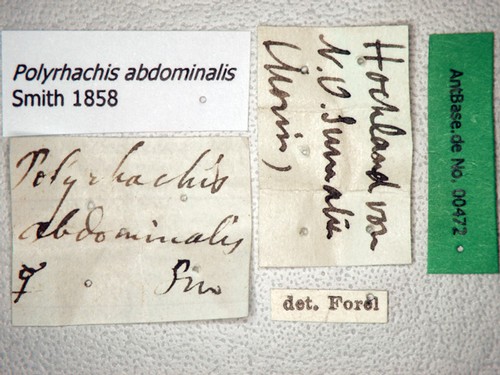 Polyrhachis abdominalis
Smith 1858
Polyrhachis
abdominalis
☿ Sm
Hochland von
N.O. Sumatra
det. Forel
AntBase.de No. 00472